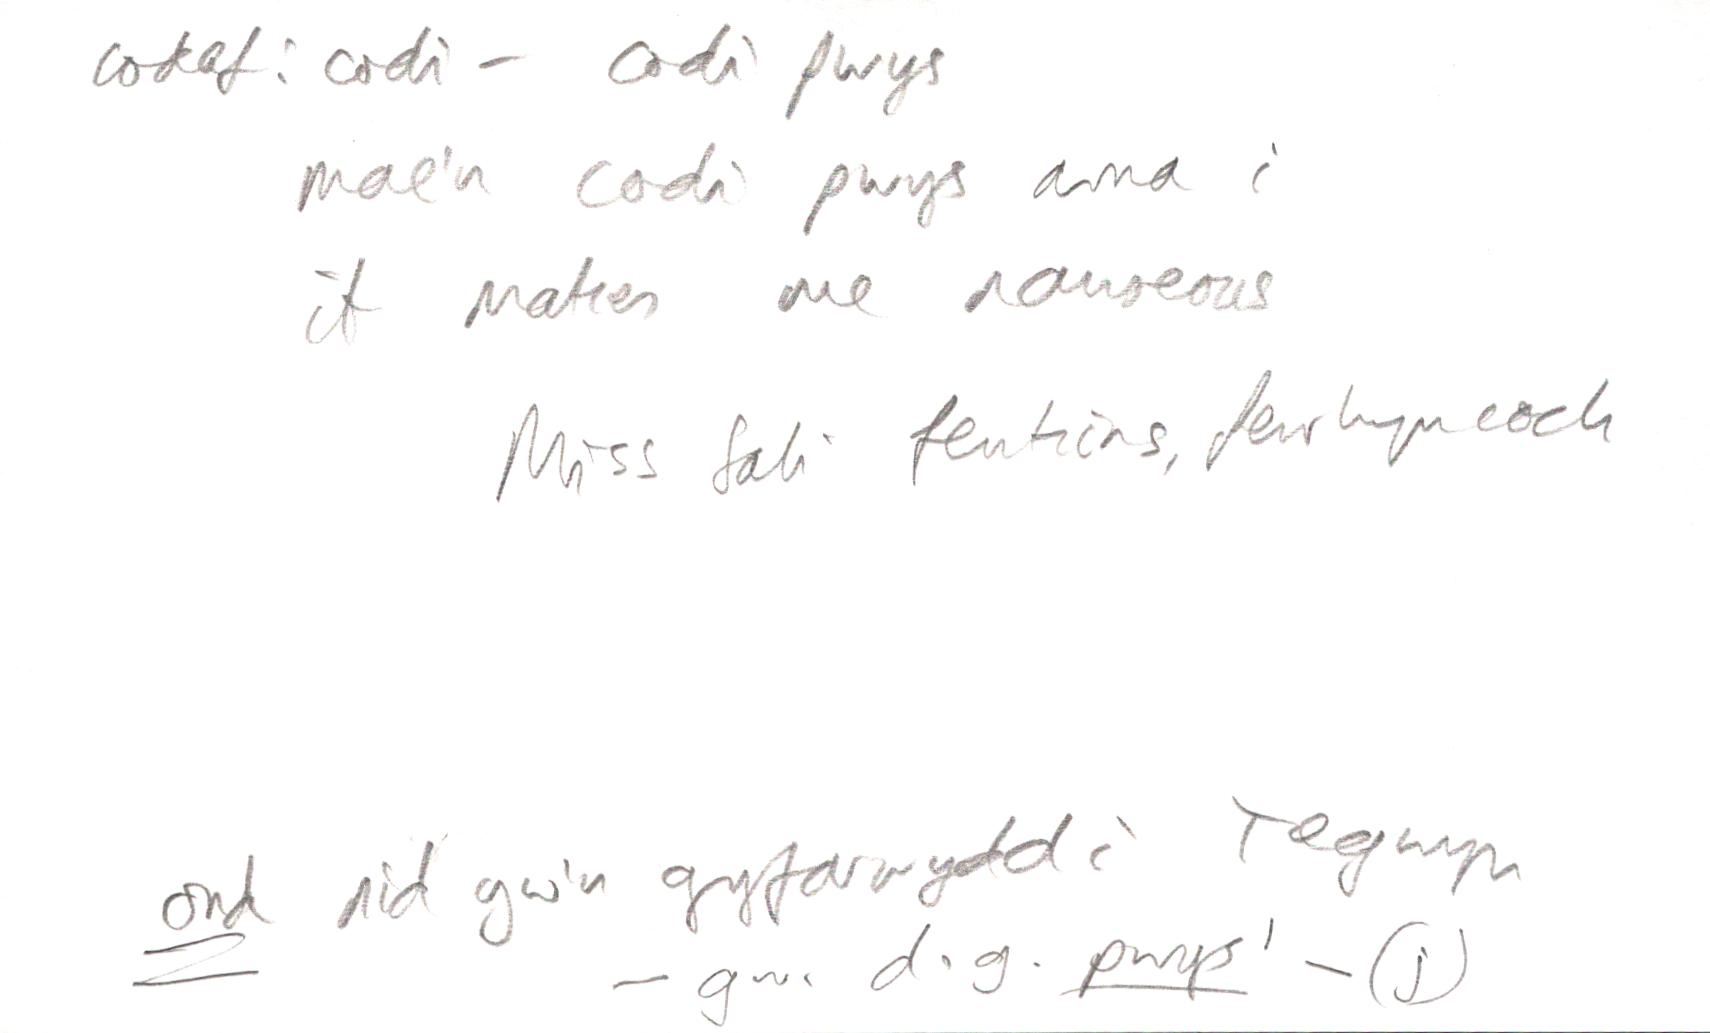 codaf: codi – codi pwys
mae'n codi pwys arna i
it makes me nauseous
Miss Sali Jenkins, Penrhyncoch
ond nid yw'n gyfarwydd i Tegwyn
– gw. d.g. pwys¹ – (j)